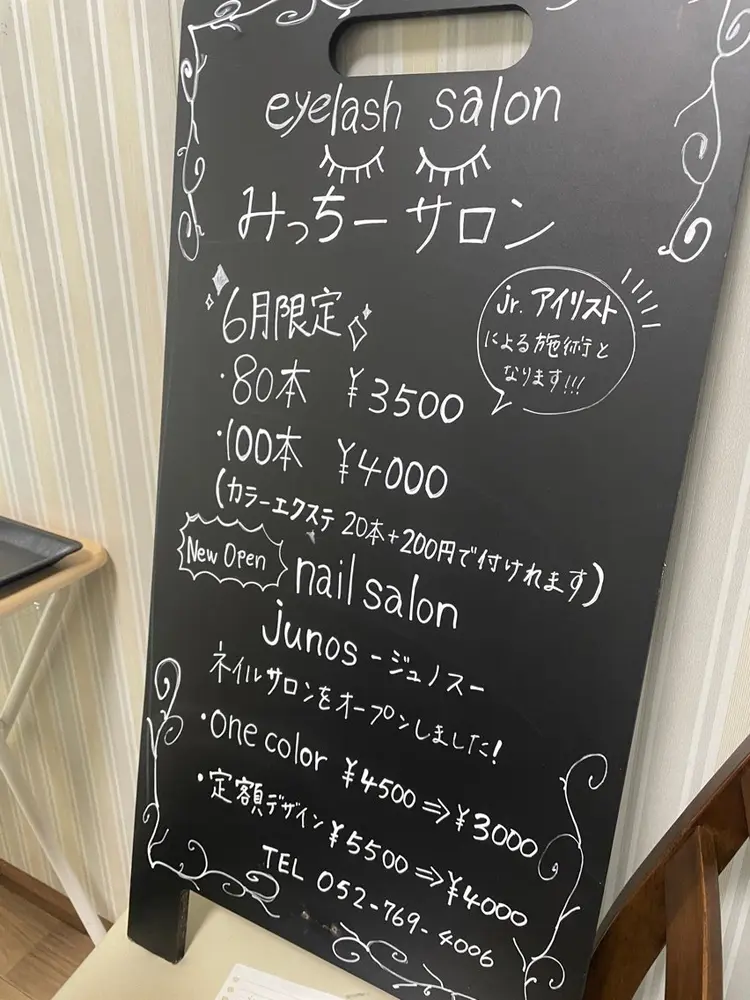 eyelash salon
みっちーサロン
6月限定
jr. アイリスト
による施術と
なります!!!
・80本 ¥3500
・100本 ¥4000
(カラーエクステ 20本+200円で付けれます)
New Open
nail salon
junos -ジュノス-
ネイルサロンをオープンしました!
・one color ¥4500⇒¥3000
・定額デザイン ¥5500⇒¥4000
TEL 052-769-4006